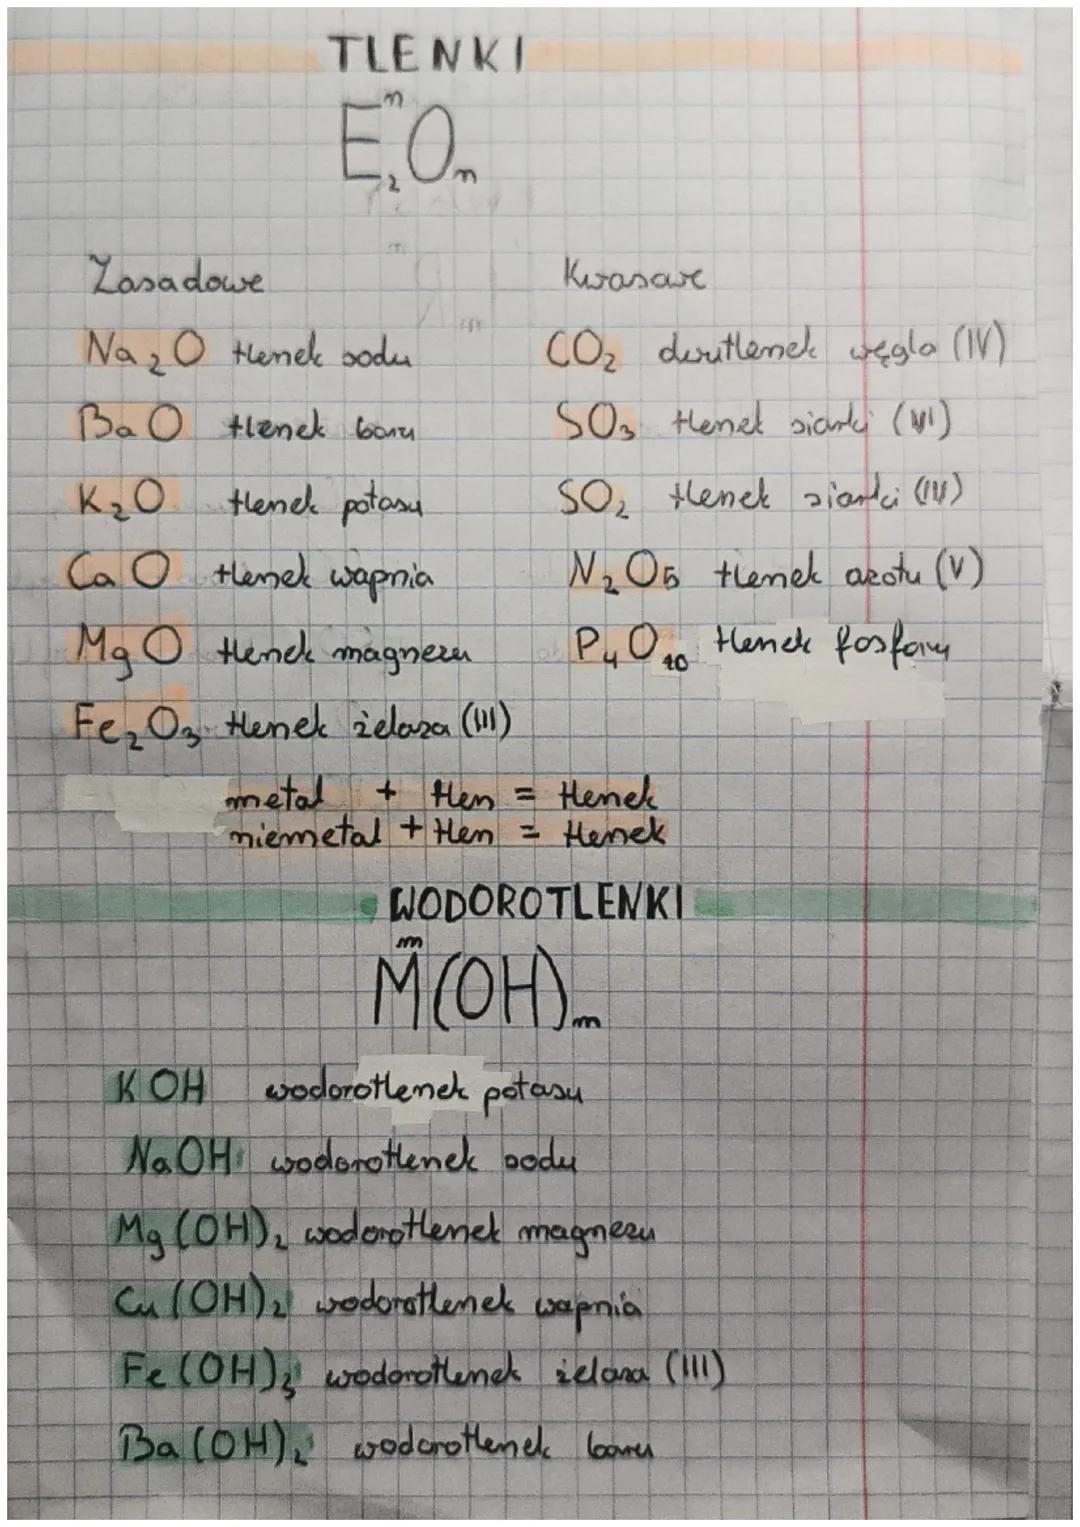 TLENKI
Eⁿ₂Oₙ
Zasadowe
Na₂O tlenek sodu
BaO tlenek baru
K₂O tlenek potasu
CaO tlenek wapnia
MgO tlenek magnezu
Fe₂O₃ tlenek żelaza (III)
Kwasowe
CO₂ dwutlenek węgla (IV)
SO₃ tlenek siarki (VI)
SO₂ tlenek siarki (IV)
N₂O₅ tlenek azotu (V)
P₄O₁₀ tlenek fosforu
metal + tlen = tlenek
niemetal + tlen = tlenek
WODOROTLENKI
Mᵐ(OH)ₘ
KOH wodorotlenek potasu
NaOH wodorotlenek sodu
Mg(OH)₂ wodorotlenek magnezu
Cu(OH)₂ wodorotlenek wapnia
Fe(OH)₃ wodorotlenek żelaza (III)
Ba(OH)₂ wodorotlenek baru